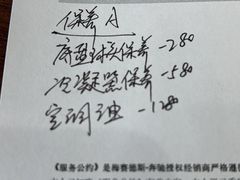 保养 A
底盘球头保养 -280
冷凝器保养 -580
空调
-1280
《服务公约》是梅赛德斯-奔驰授权经销商严格遵